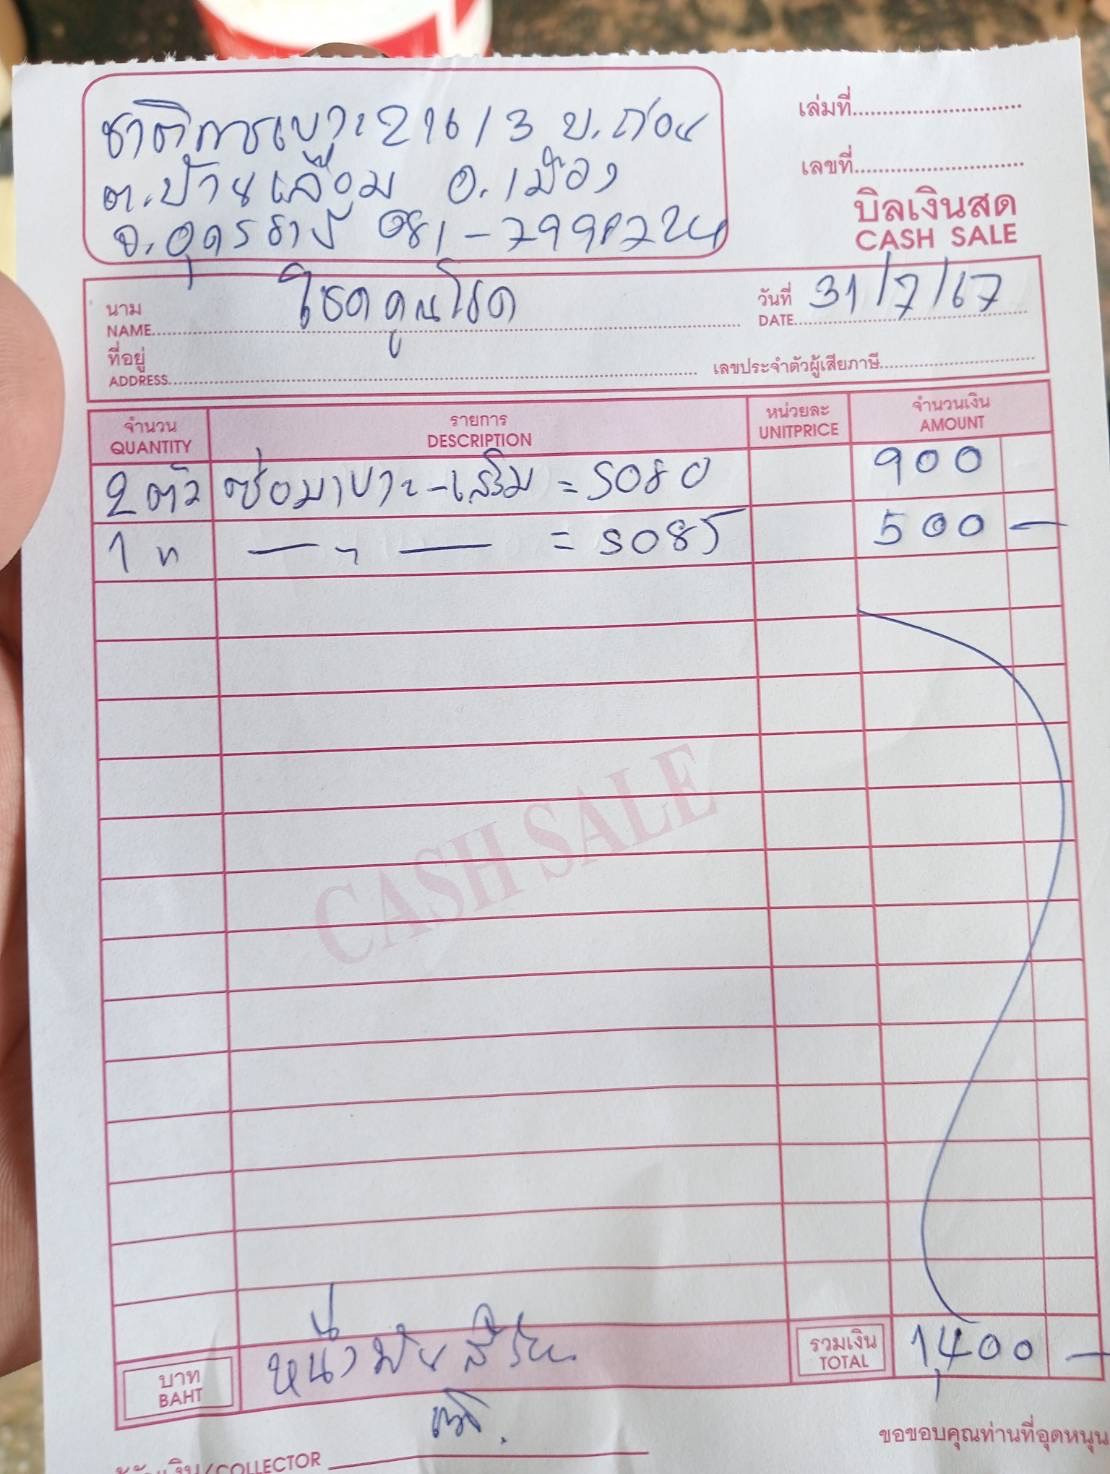 ชาติการเบาะ 216/3 ข.
ต.บ้านเลื่อม อ.เมือง
จ.อุดรธานี 081-
เล่มที่
เลขที่
บิลเงินสด
CASH SALE
นาม โชคคูณโชค
NAME
วันที่ 31/7/67
DATE
ที่อยู่
ADDRESS
เลขประจำตัวผู้เสียภาษี
จำนวน รายการ หน่วยละ จำนวนเงิน
QUANTITY DESCRIPTION UNITPRICE AMOUNT
2 ตัว ซ่อมเบาะ-เสริม = SO80 900
1 " —"— = SO85 500 —
CASH SALE
บาท
BAHT
รวมเงิน 1,400 —
TOTAL
ขอขอบคุณท่านที่อุดหนุน
/COLLECTOR